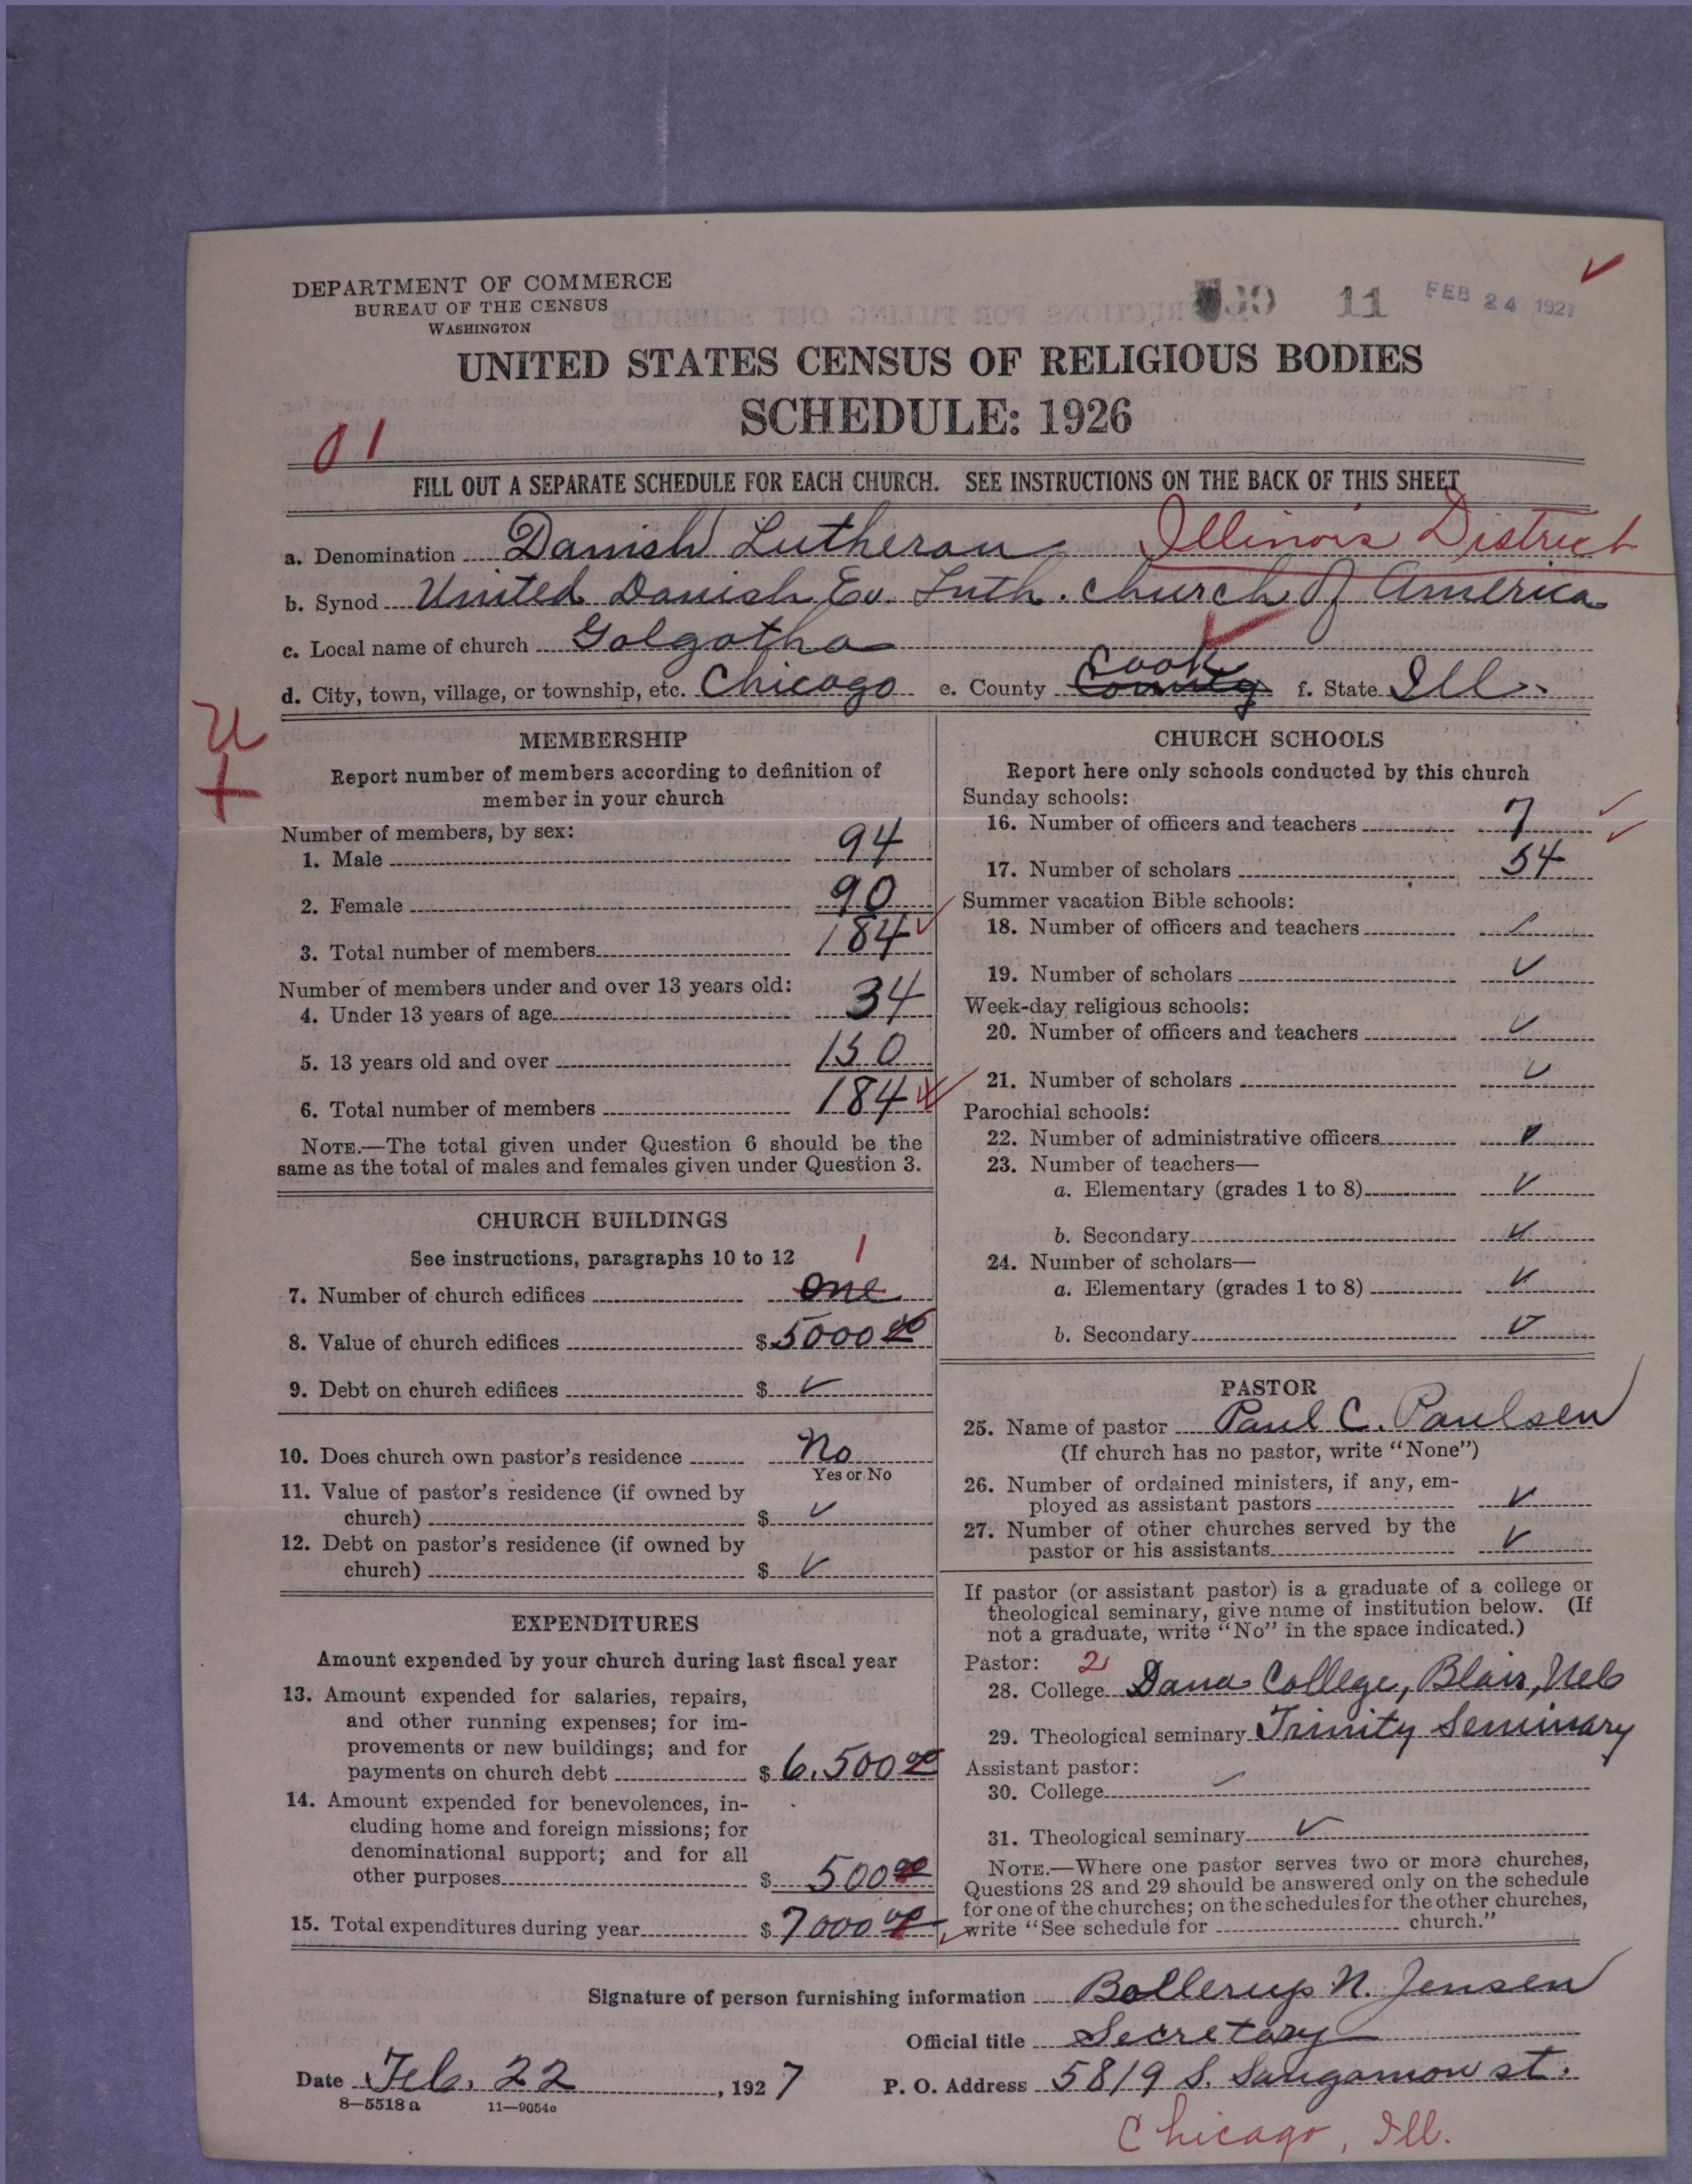 DEPARTMENT OF COMMERCE
BUREAU OF THE CENSUS
WASHINGTON
11 FEB 24 1927
UNITED STATES CENSUS OF RELIGIOUS BODIES
SCHEDULE: 1926
01
FILL OUT A SEPARATE SCHEDULE FOR EACH CHURCH. SEE INSTRUCTIONS ON THE BACK OF THIS SHEET
a. Denomination Danish Lutheran Illinois District
b. Synod United Danish Ev. Luth. church of America
c. Local name of church Golgotha
d. City, town, village, or township, etc. Chicago e. County County Cook f. State Ill.
MEMBERSHIP
Report number of members according to definition of
member in your church
Number of members, by sex:
1. Male 94
2. Female 90
3. Total number of members 184
Number of members under and over 13 years old:
4. Under 13 years of age 34
5. 13 years old and over 150
6. Total number of members 184
NOTE.—The total given under Question 6 should be the
same as the total of males and females given under Question 3.
CHURCH BUILDINGS
See instructions, paragraphs 10 to 12 1
7. Number of church edifices one
8. Value of church edifices $ 5000 00
9. Debt on church edifices $ ✓
10. Does church own pastor's residence No
Yes or No
11. Value of pastor's residence (if owned by
church) $ ✓
12. Debt on pastor's residence (if owned by
church) $ ✓
EXPENDITURES
Amount expended by your church during last fiscal year
13. Amount expended for salaries, repairs,
and other running expenses; for im-
provements or new buildings; and for
payments on church debt $ 6,500 00
14. Amount expended for benevolences, in-
cluding home and foreign missions; for
denominational support; and for all
other purposes $ 500 00
15. Total expenditures during year $ 7000 00
CHURCH SCHOOLS
Report here only schools conducted by this church
Sunday schools:
16. Number of officers and teachers 7
17. Number of scholars 54
Summer vacation Bible schools:
18. Number of officers and teachers ✓
19. Number of scholars ✓
Week-day religious schools:
20. Number of officers and teachers ✓
21. Number of scholars ✓
Parochial schools:
22. Number of administrative officers ✓
23. Number of teachers—
a. Elementary (grades 1 to 8) ✓
b. Secondary ✓
24. Number of scholars—
a. Elementary (grades 1 to 8) ✓
b. Secondary ✓
PASTOR
25. Name of pastor Paul C. Paulsen
(If church has no pastor, write "None")
26. Number of ordained ministers, if any, em-
ployed as assistant pastors ✓
27. Number of other churches served by the
pastor or his assistants ✓
If pastor (or assistant pastor) is a graduate of a college or
theological seminary, give name of institution below. (If
not a graduate, write "No" in the space indicated.)
Pastor: 2
28. College Dana College, Blair, Neb
29. Theological seminary Trinity Seminary
Assistant pastor:
30. College ✓
31. Theological seminary ✓
NOTE.—Where one pastor serves two or more churches,
Questions 28 and 29 should be answered only on the schedule
for one of the churches; on the schedules for the other churches,
write "See schedule for church."
Signature of person furnishing information Bollerup N. Jensen
Official title Secretary
Date Feb. 22, 1927 P. O. Address 5819 S. Sangamon st.
8—5518 a 11—9054c
Chicago, Ill.